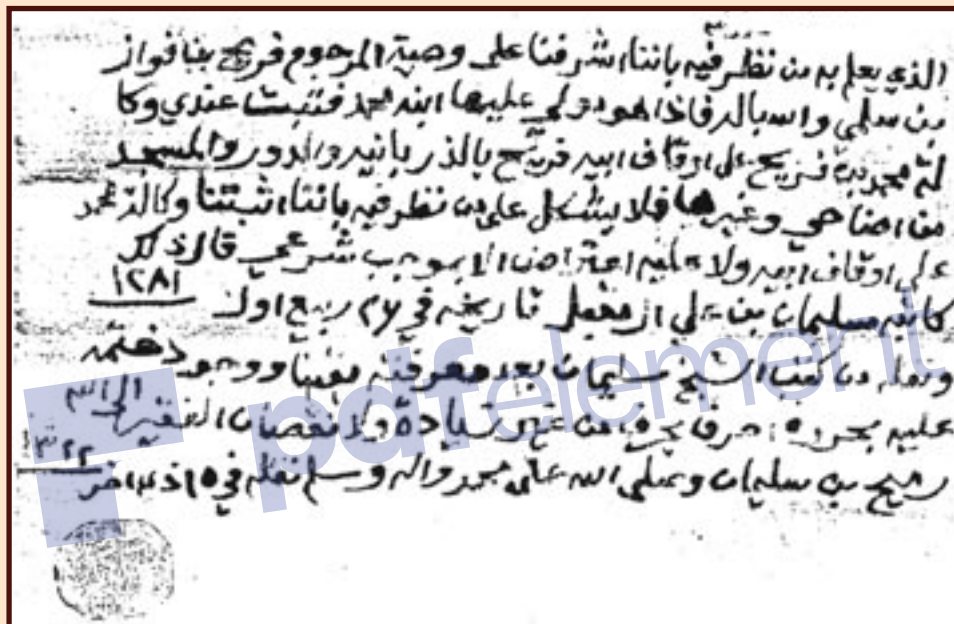 الذي يعلم به من نظر فيه باننا اشرفنا على وصية المرحوم فريح بن فواز
بن سلمي واسباله فاذا هو مولي عليها ابنه محمد فثبت عندي وكا
لة محمد بن فريح على اوقاف ابيه فريح بالذربانيه والدور والمسجد
من اضاحي وغيرها فلا يشكل على من نظر فيه باننا اثبتنا وكالة محمد
على اوقاف ابيه ولا عليه اعتراض الا بموجب شرعي قال ذلك
كاتبه سليمان بن علي ال مقبل تاريخه في ٢۶ ربيع اول ١٢٨١
ونقله من كتب الشيخ سليمان بعد معرفته يقينا ووجود ختمه
عليه بحروفه حرفا بحرف من غير زيادة ولا نقصان الفقير الى الله
بن سليمان وصلى الله على محمد واله وسلم نقله في ١٥
pdfelement